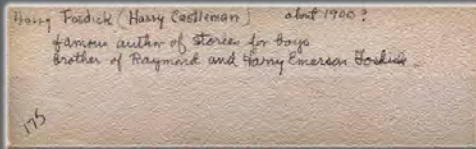 Harry Fosdick (Harry Castleman) about 1900?
famous author of stories for boys
brother of Raymond and Harry Emerson Fosdick
175